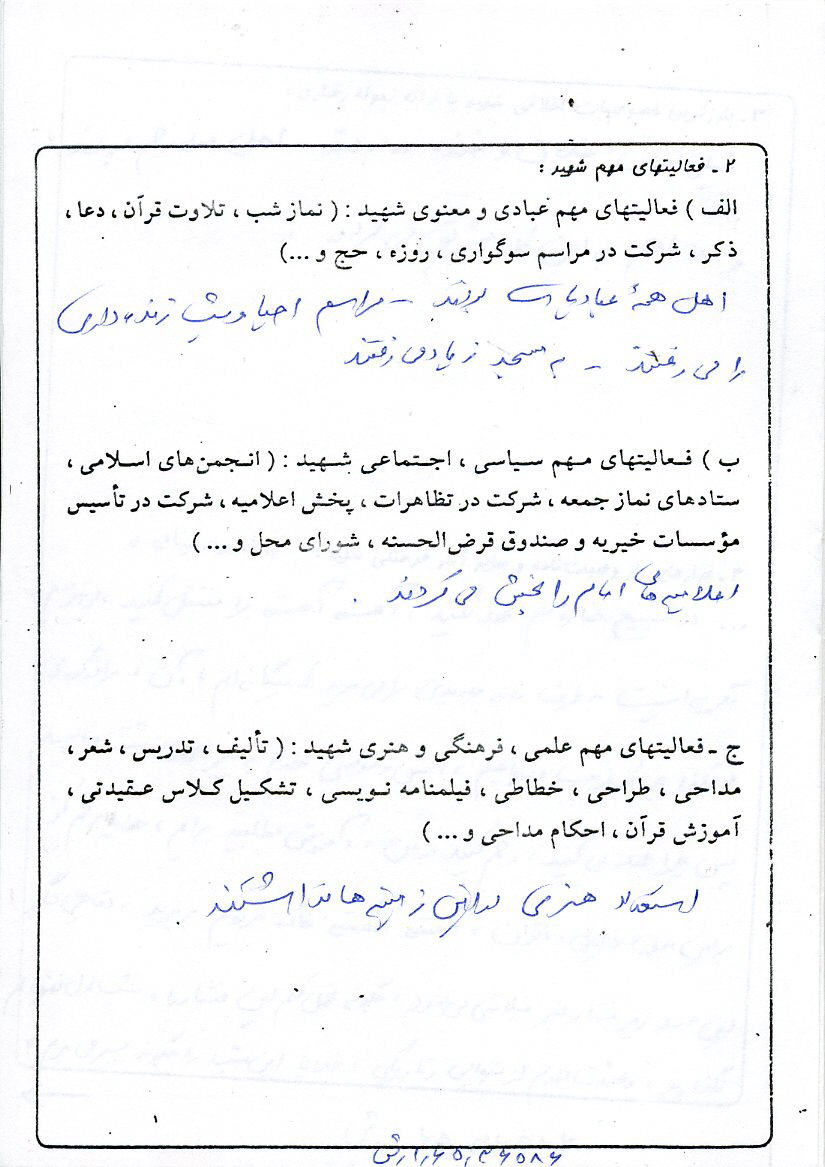 ۲ ـ فعالیتهای مهم شهید :
الف ) فعالیتهای مهم عبادی و معنوی شهید : ( نماز شب ، تلاوت قرآن ، دعا ،
ذکر ، شرکت در مراسم سوگواری ، روزه ، حج و ...)
اهل همهٔ عبادتها بودند ـ مراسم احیا و شب زنده داری
را می رفتند ـ به مسجد زیاد می رفتند
ب ) فعالیتهای مهم سیاسی ، اجتماعی شهید : ( انجمن‌های اسلامی ،
ستادهای نماز جمعه ، شرکت در تظاهرات ، پخش اعلامیه ، شرکت در تأسیس
مؤسسات خیریه و صندوق قرض‌الحسنه ، شورای محل و ... )
اعلامیه های امام را پخش می کردند .
ج ـ فعالیتهای مهم علمی ، فرهنگی و هنری شهید : ( تألیف ، تدریس ، شعر ،
مداحی ، طراحی ، خطاطی ، فیلمنامه نویسی ، تشکیل کلاس عقیدتی ،
آموزش قرآن ، احکام مداحی و ... )
استعداد هنری در این زمینه ها نداشتند
۱